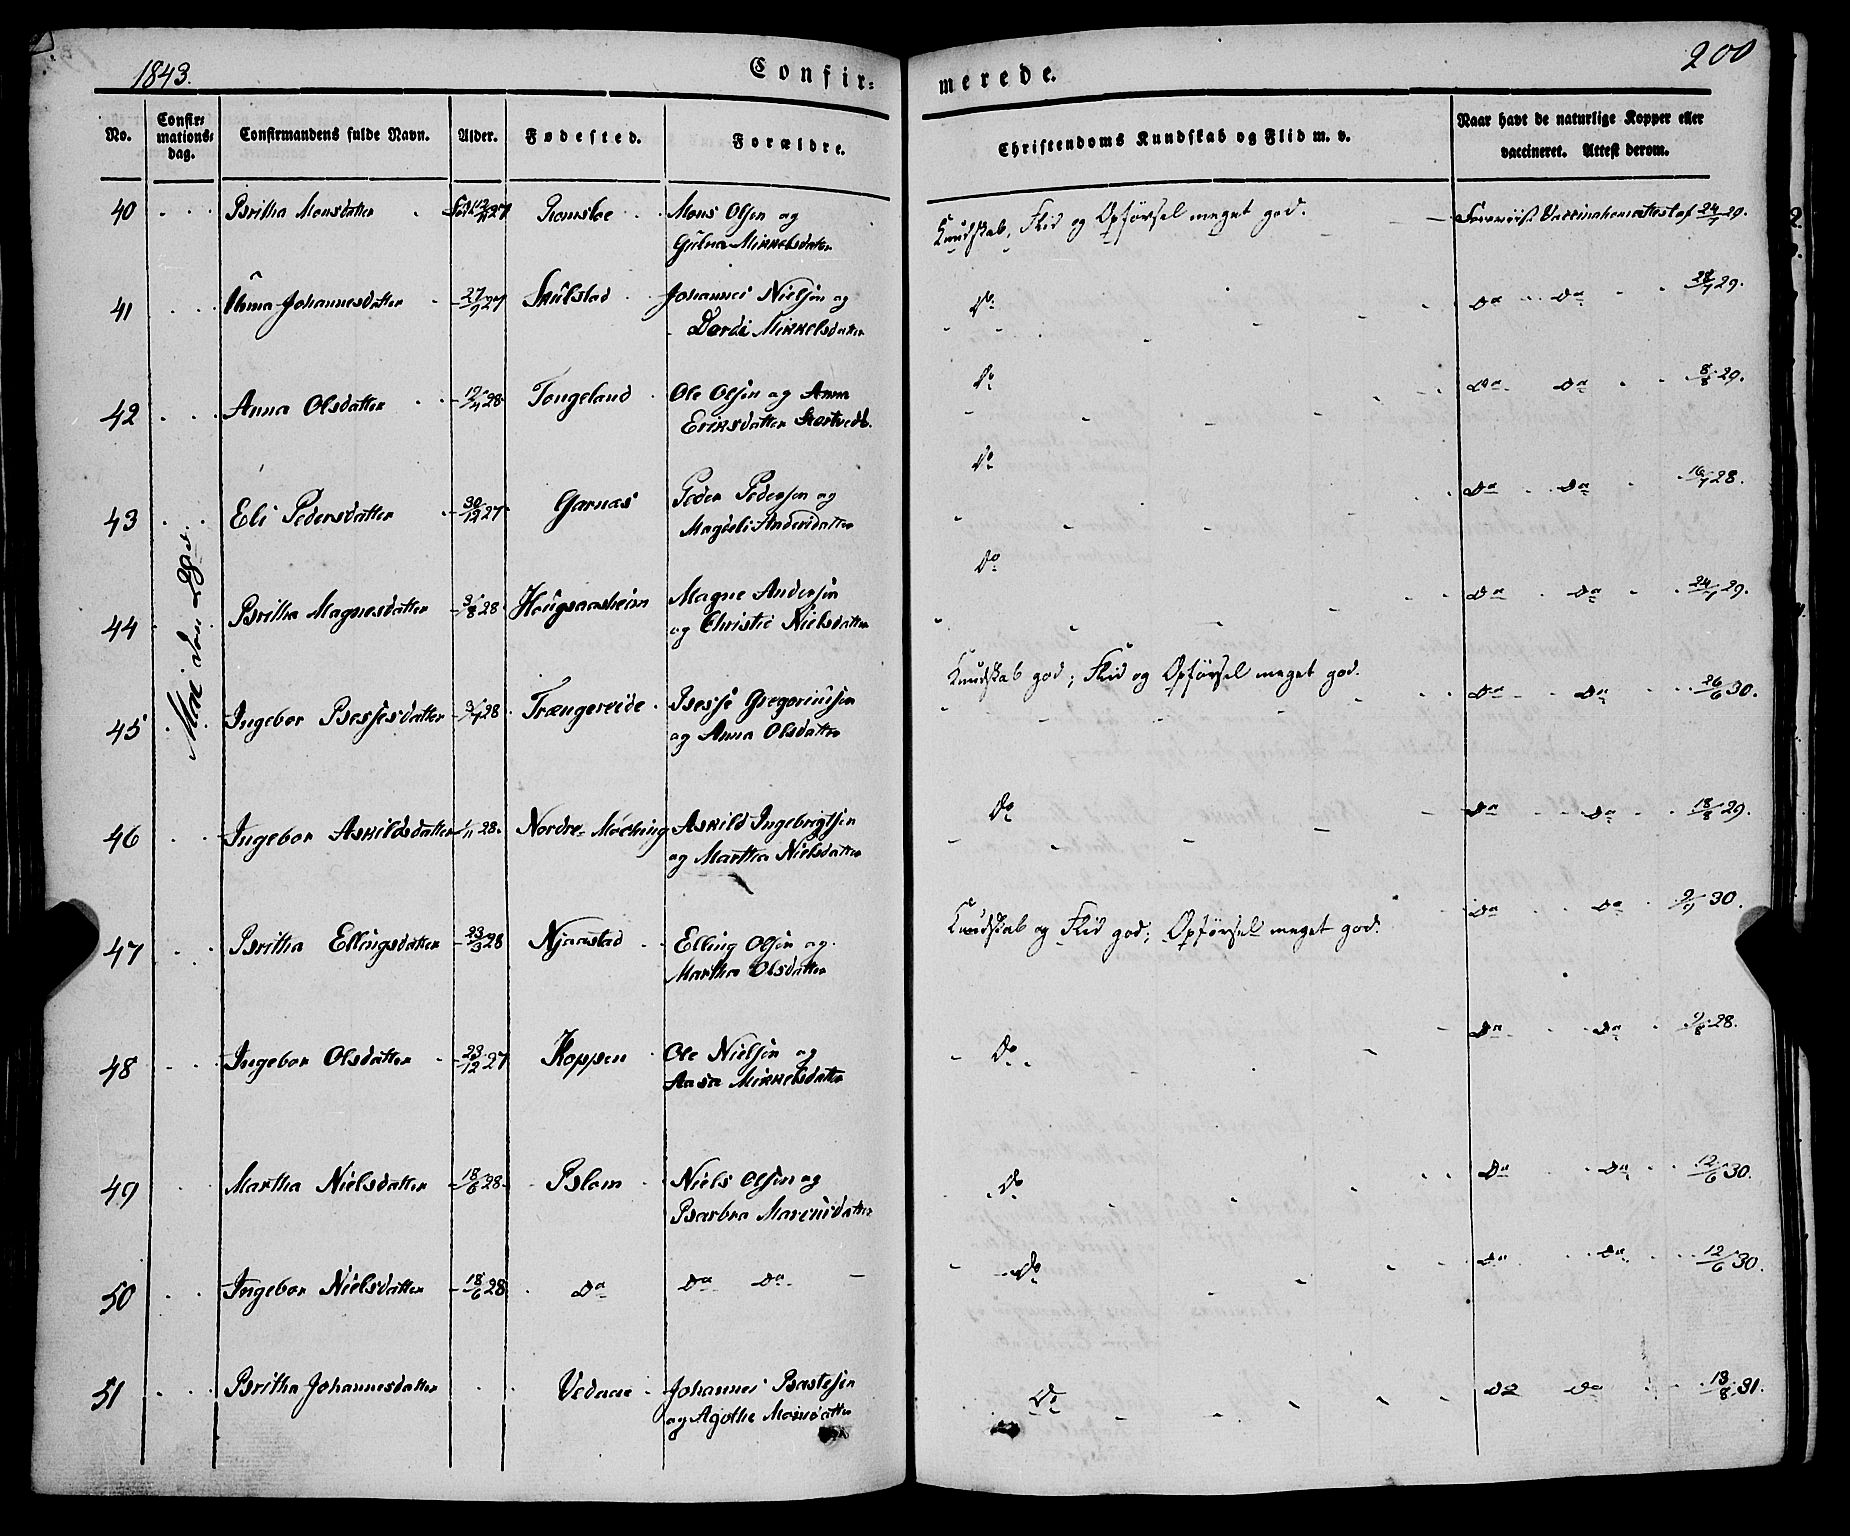 1843.
Confir-
merede.
200
No.
Confir-
mations-
dag.
Confirmandens fulde Navn.
Alder.
Fødested.
Forældre.
Christendoms Kundskab og Flid m. v.
Naar havt de naturlige Kopper eller
vaccineret. Attest derom.
Mai den 28de
40 Britha Monsdatter Romsloe Mons Olsen og
Mikkelsdatter
Kundskab, Flid og Opførsel meget god.
24/7 29.
41 Anna Johannesdatter 27/9 27 Skulstad Johannes Nielsen og
Dordi Mikkelsdatter
Do Do Do 28/7 29.
42 Anna Olsdatter 19/4 28 Tongeland Ole Olsen og Anna
Eriksdatter
Do Do Do 8/8 29.
43 Eli Pedersdatter 30/12 27 Garnæs Peder Pedersen og
Magdeli Andersdatter
Do Do Do 16/7 28.
44 Britha Magnesdatter 3/8 28 Hougsaasheim Magne Andersen
og Christie Nielsdatter
Do Do Do 24/7 29.
45 Ingebor Bessesdatter 3/7 28 Trængereide Besse Gregoriussen
og Anna Olsdatter
Kundskab god; Flid og Opførsel meget god.
Do Do 26/6 30.
46 Ingebor Askildsdatter 1/11 28. Nordre Askild Ingebrigtsen
og Martha Nielsdatter
Do Do Do 18/8 29.
47 Britha Ellingsdatter 23/3 28 Njaastad Elling Olsen og
Martha Olsdatter
Kundskab og Flid god; Opførsel meget god.
Do Do 9/9 30.
48 Ingebor Olsdatter 23/12 27 Koppen Ole Nielsen og
Aasa Mikkelsdatter
Do Do Do 9/8 28.
49 Martha Nielsdatter 18/6 28 Blom Niels Olsen og
Barbra Mareusdatter
Do Do Do 12/6 30.
50 Ingebor Nielsdatter 18/6 28 Do Do Do
Do Do Do 12/6 30.
51 Britha Johannesdatter Vedaae Johannes Bastesen
og Agathe Monsdatter
Do Do Do 13/8 31.